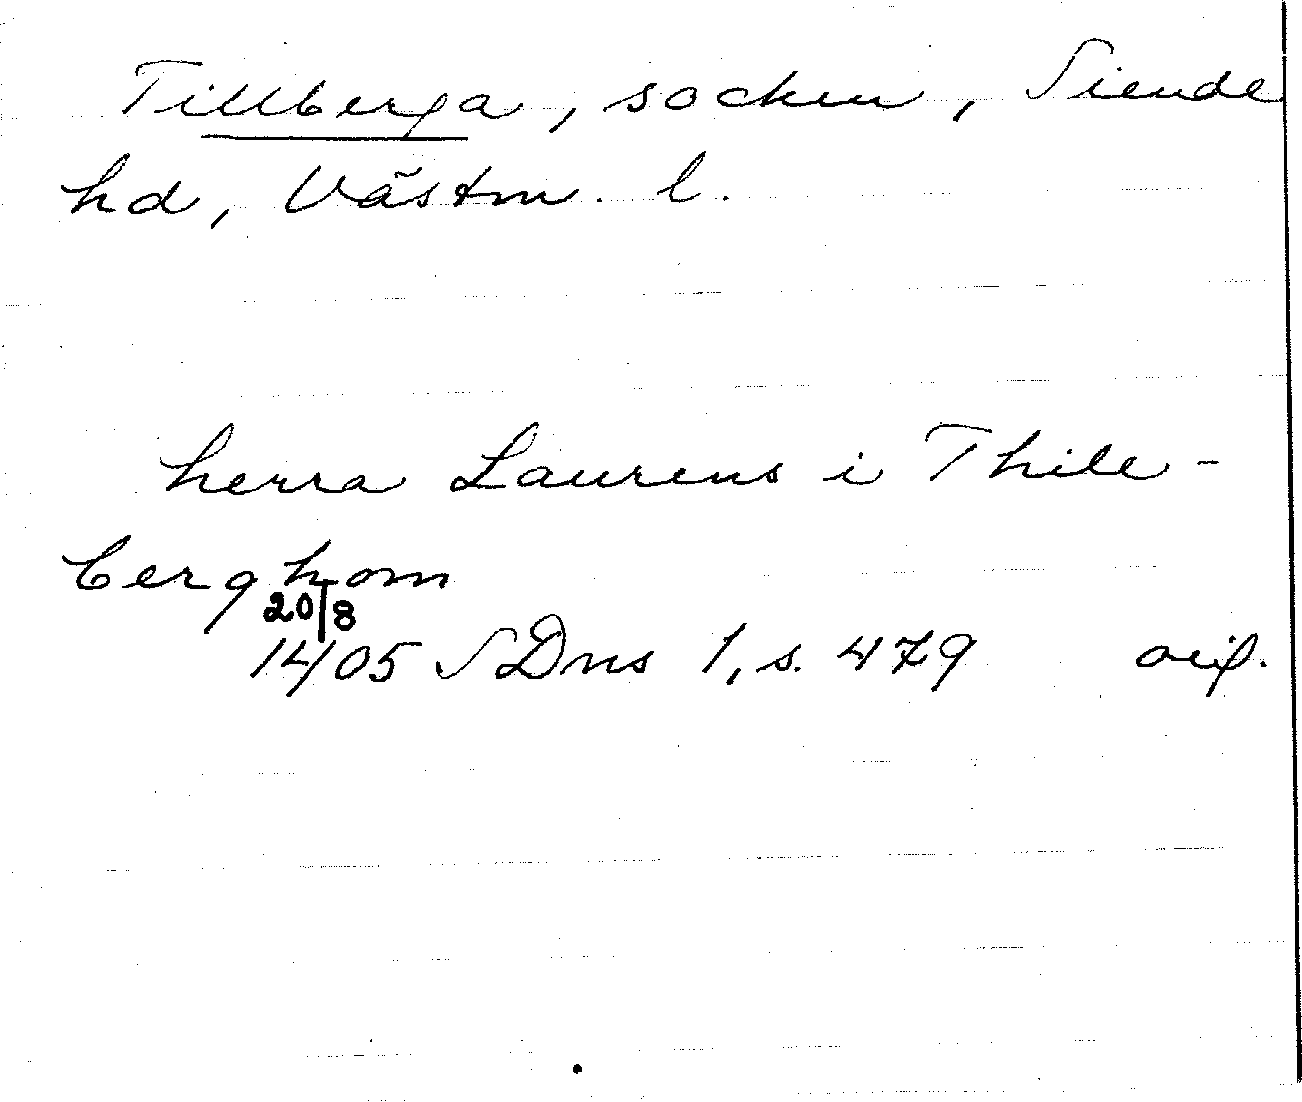 Tillberga, socken, Siende
hd, Västm. l.
herra Laurens i Thile-
berghom
20/8
1405 SDns 1, s. 479 oif.